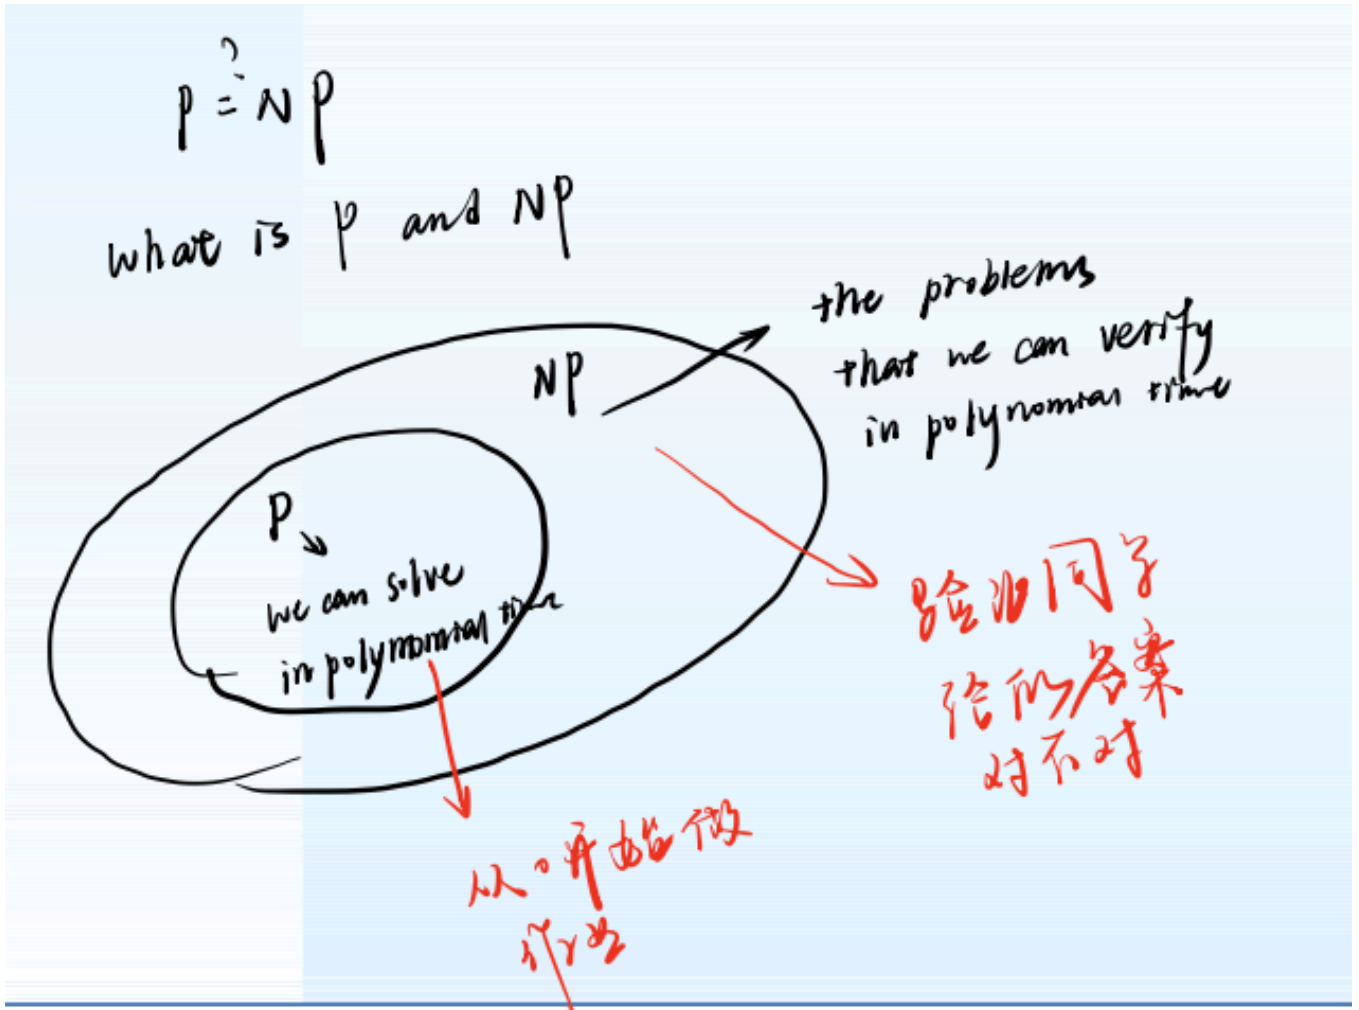 P ?= NP
what is P and NP
NP
the problems
that we can verify
in polynomial time
P
we can solve
in polynomial time
验证同学
给的答案
对不对
从0开始做
作业